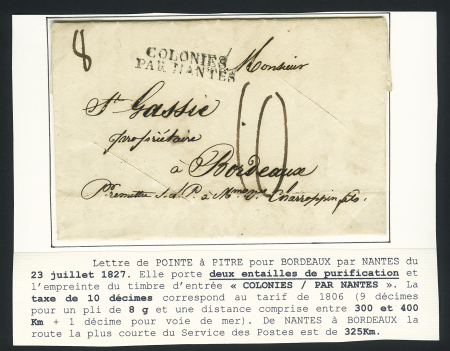 8
COLONIES
PAR NANTES
Monsieur
St Gassie
propriétaire
10
à Bordeaux
Pr remettre s.d.P. à Mr
Lettre de POINTE à PITRE pour BORDEAUX par NANTES du
23 juillet 1827. Elle porte deux entailles de purification et
l'empreinte du timbre d'entrée « COLONIES / PAR NANTES ». La
taxe de 10 décimes correspond au tarif de 1806 (9 décimes
pour un pli de 8 g et une distance comprise entre 300 et 400
Km + 1 décime pour voie de mer). De NANTES à BORDEAUX la
route la plus courte du Service des Postes est de 325Km.